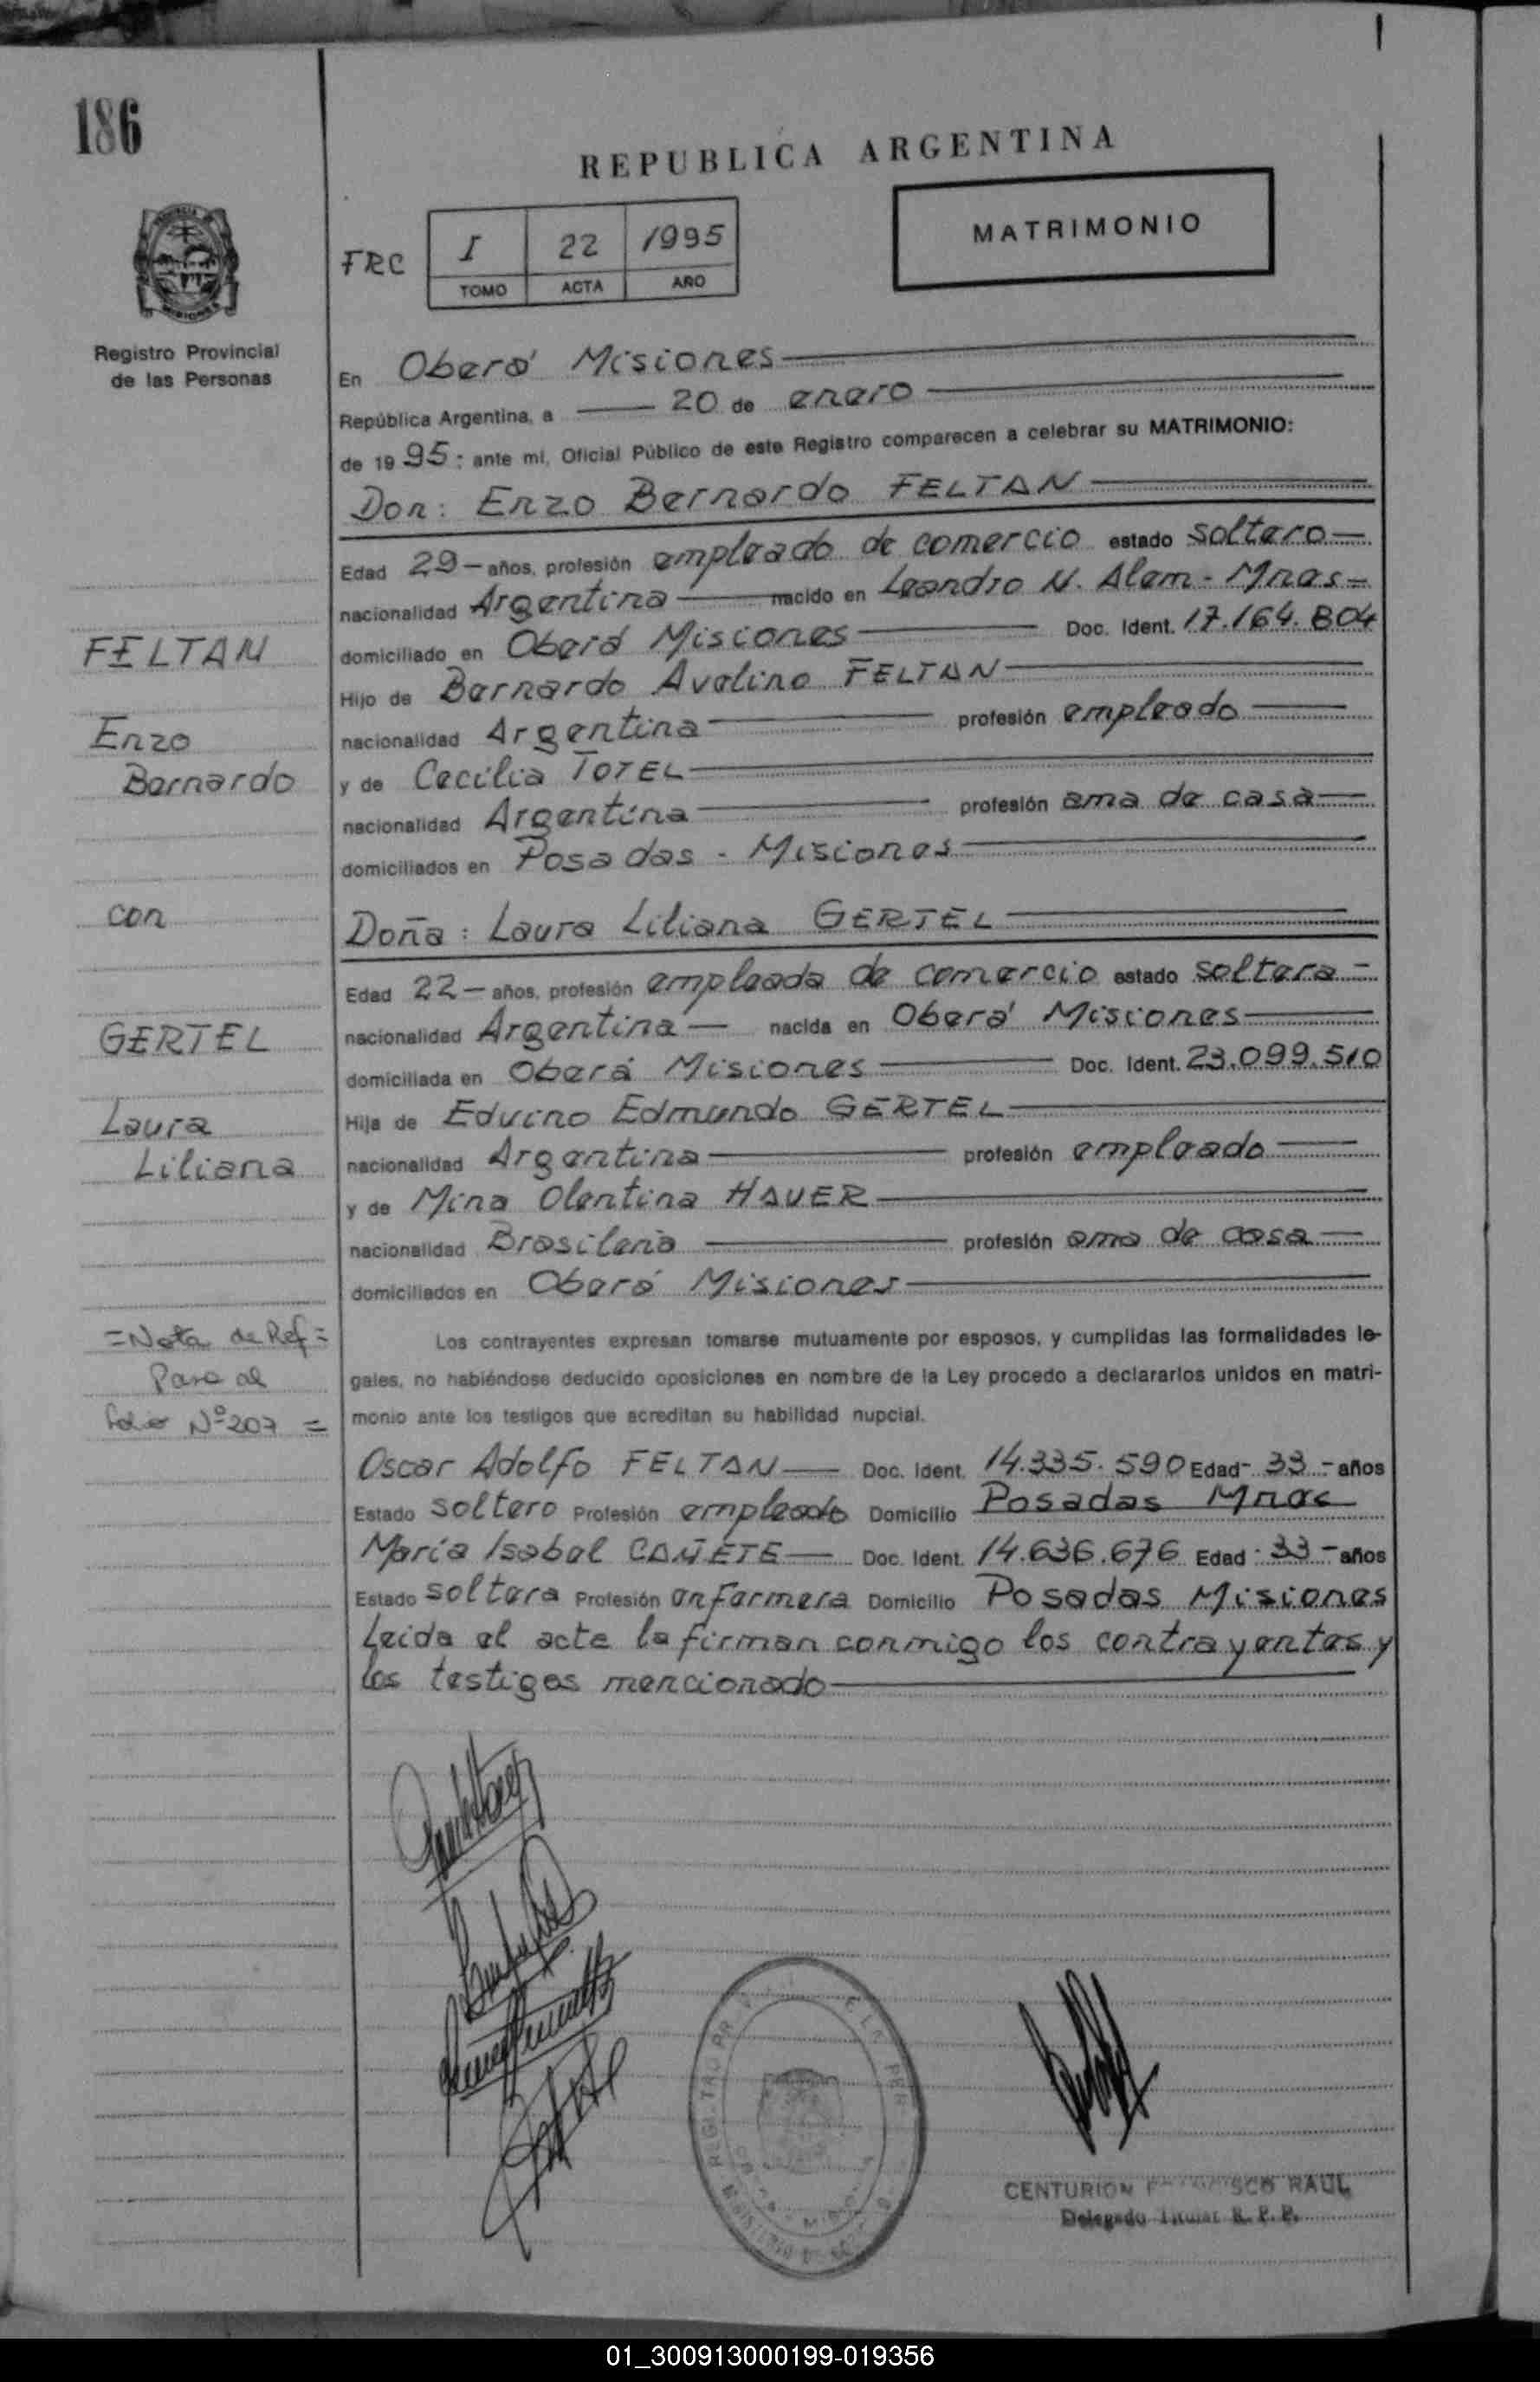 186
REPUBLICA ARGENTINA
FRC
I 22 1995
TOMO ACTA AÑO
MATRIMONIO
Registro Provincial
de las Personas
En Oberá Misiones
República Argentina, a 20 de enero
de 19 95 : ante mi, Oficial Público de este Registro comparecen a celebrar su MATRIMONIO:
Don: Enzo Bernardo FELTAN
Edad 29 - años, profesión empleado de comercio estado soltero
nacionalidad Argentina nacido en Leandro N. Alem - Mnes -
domiciliado en Oberá Misiones Doc. Ident. 17.164.804
Hijo de Bernardo Avelino FELTAN
nacionalidad Argentina profesión empleado
y de Cecilia TOTEL
nacionalidad Argentina profesión ama de casa
domiciliados en Posadas - Misiones
Doña: Laura Liliana GERTEL
Edad 22 - años, profesión empleada de comercio estado soltera -
nacionalidad Argentina nacida en Oberá Misiones
domiciliada en Oberá Misiones Doc. Ident. 23.099.510
Hija de Eduino Edmundo GERTEL
nacionalidad Argentina profesión empleado
y de Mina Olentina HAUER
nacionalidad Brasileña profesión ama de casa
domiciliados en Oberá Misiones
Los contrayentes expresan tomarse mutuamente por esposos, y cumplidas las formalidades le-
gales, no habiéndose deducido oposiciones en nombre de la Ley procedo a declararlos unidos en matri-
monio ante los testigos que acreditan su habilidad nupcial.
Oscar Adolfo FELTAN Doc. Ident. 14.335.590 Edad - 33 - años
Estado soltero Profesión empleado Domicilio Posadas Mnes
María Isabel CAÑETE Doc. Ident. 14.636.676 Edad 33 - años
Estado soltera Profesión enfermera Domicilio Posadas Misiones
Leida el acte la firman conmigo los contrayentes y
los testigos mencionado
FELTAN
Enzo
Bernardo
con
GERTEL
Laura
Liliana
= Nota de Ref =
Pase al
folio Nº 207 =
CENTURION RAUL
Delegado Titular R. P. P.
01_300913000199-019356